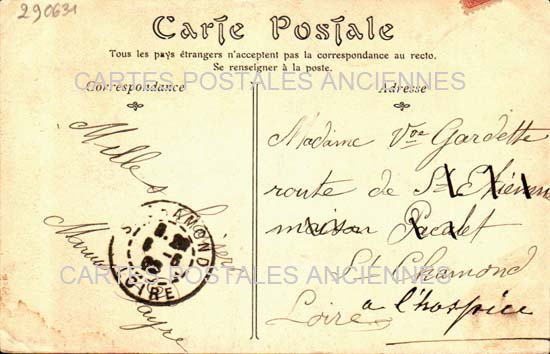 290631
Carte Postale
Tous les pays étrangers n'acceptent pas la correspondance au recto.
Se renseigner à la poste.
CARTES POSTALES ANCIENNES
Correspondance
Adresse
Milles
Madame Vve Gardette
route de St Etienne
maison Pacalet
St Chamond
Loire
a l'hospice
AMOND
LOIRE
CARTES POSTALES ANCIENNES